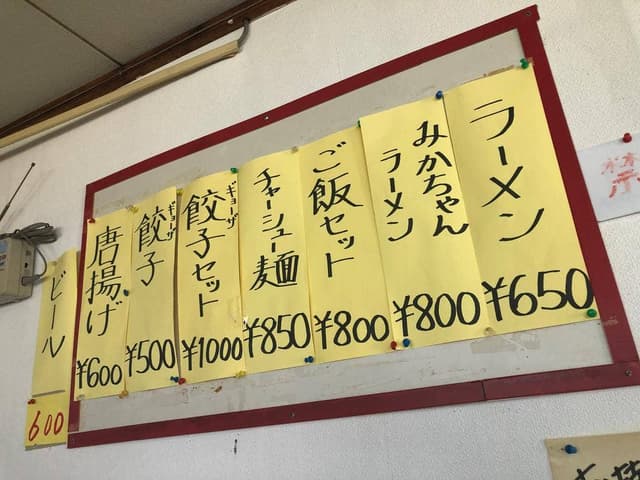 ラーメン
¥650
みかちゃん
ラーメン
¥800
ご飯セット
¥800
チャーシュー麺
¥850
ギョーザ
餃子セット
¥1000
ギョーザ
餃子
¥500
唐揚げ
¥600
ビール
600